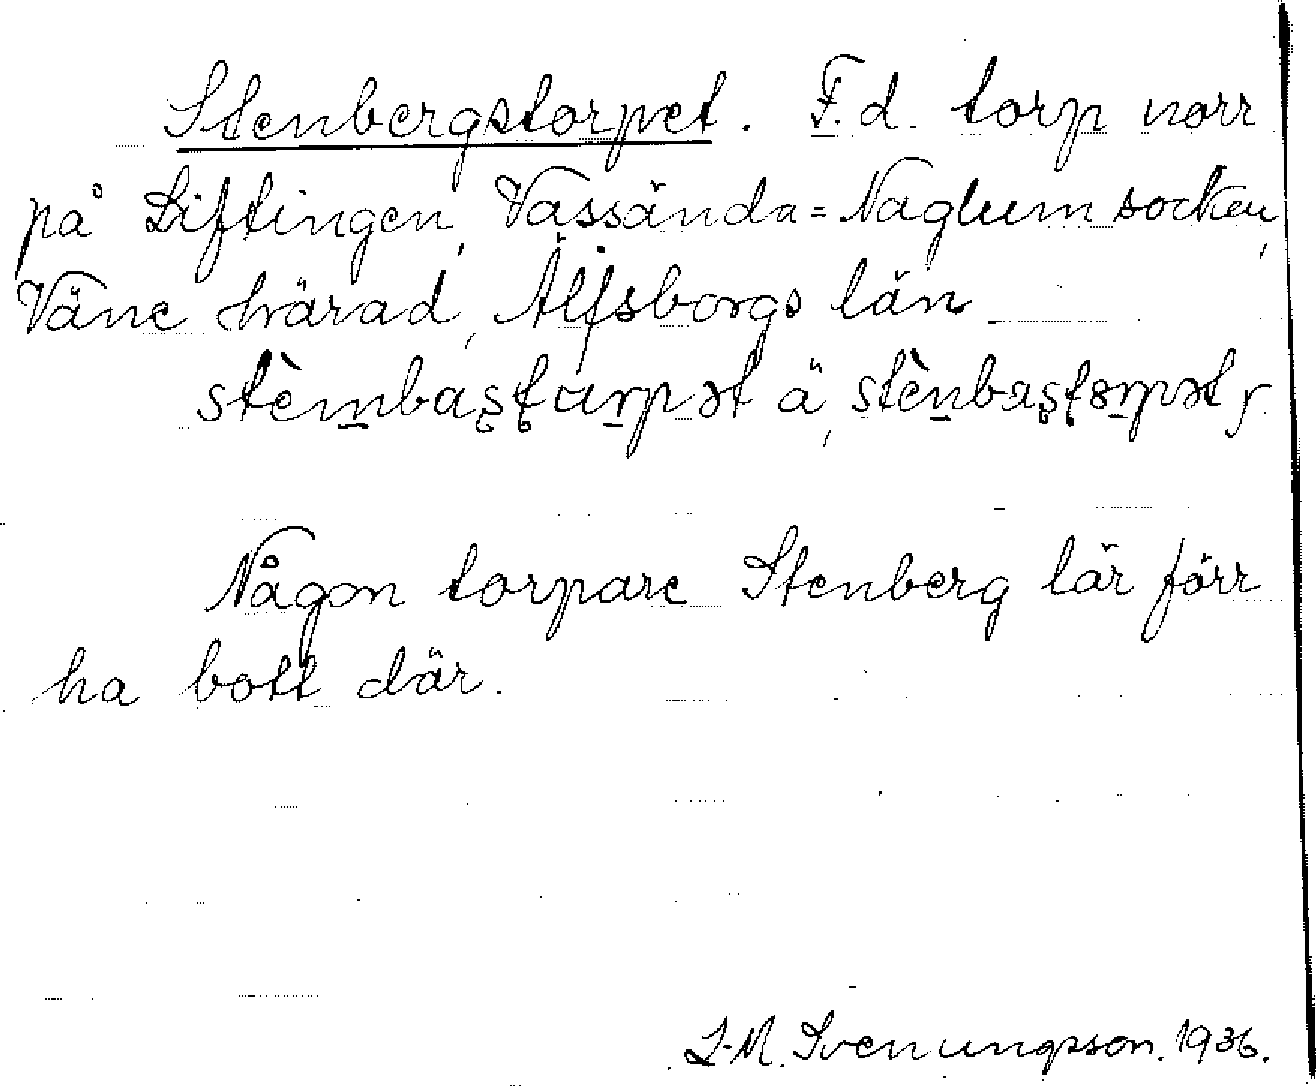 Stenbergstorpet. F.d. torp norr
på Liftingen, Vassända=Naglum socken,
Väne härad, Älfsborgs län
stè̀m̲baʂʈur̲pət ä, stèn̲baʂʈɞr̲pət
Någon torpare Stenberg lär förr
ha bott där.
L-M. Svenungsson. 1936.